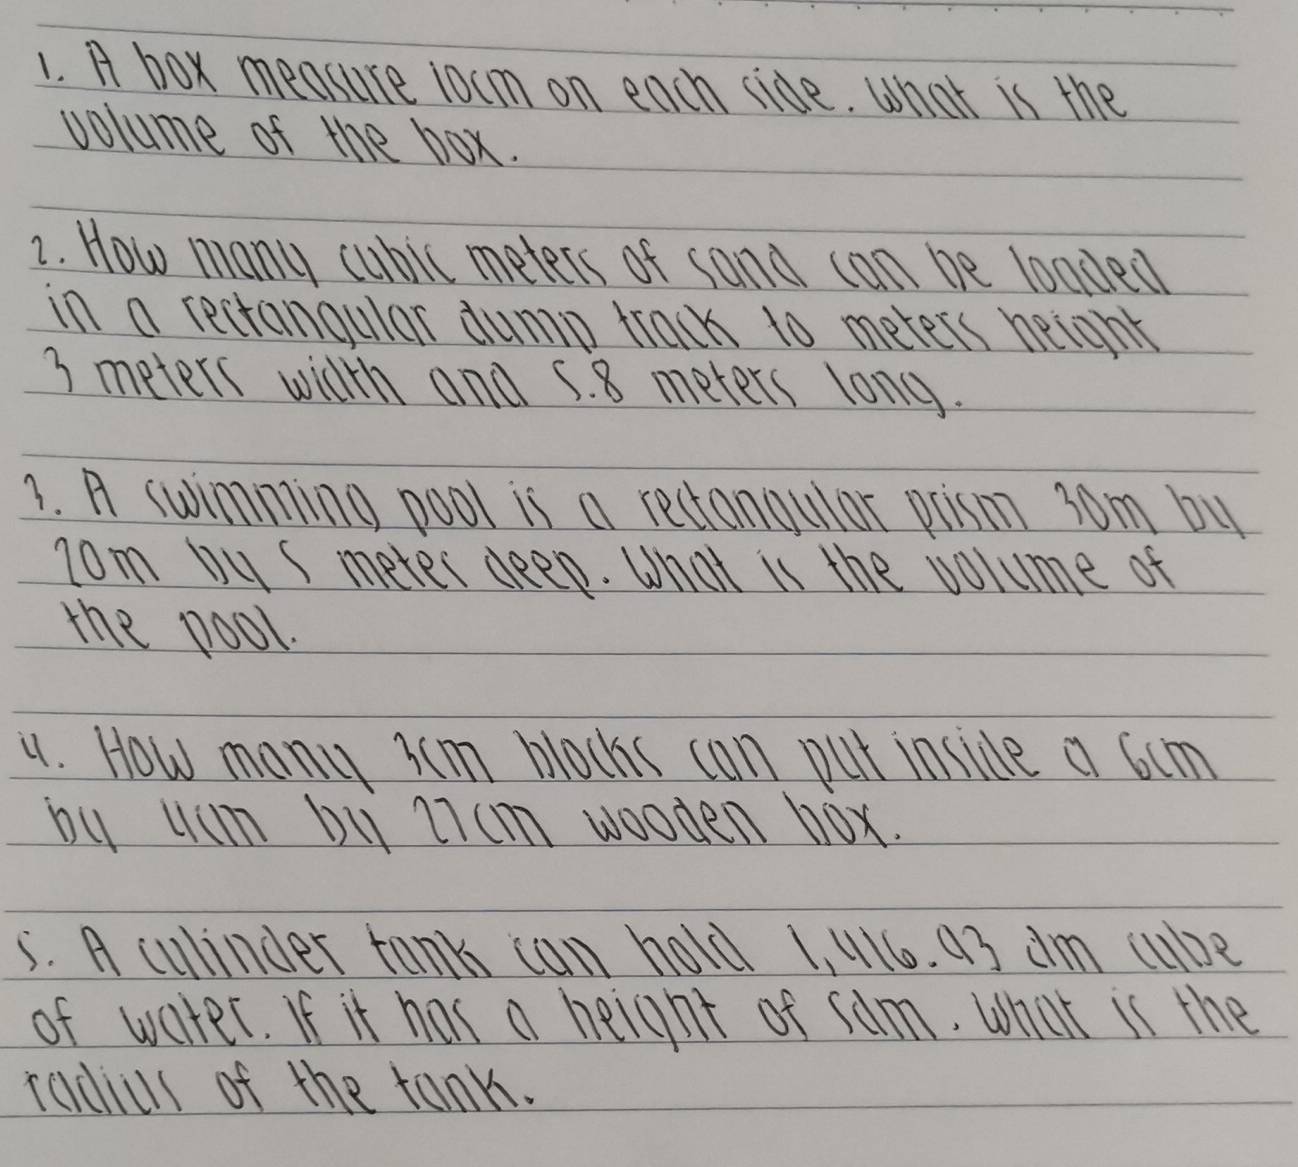 1. A box measure 10cm on each side. What is the
volume of the box.
2. How many cubic meters of sand can be loaded
in a rectangular dump track to meters height
3 meters width and 5.8 meters long.
3. A swimming pool is a rectangular prism 30m by
20m by 5 meter deep. What is the volume of
the pool.
4. How many 3cm blocks can put inside a 6cm
by 4cm by 27cm wooden box.
5. A cylinder tank can hold 1,416.93 dm cube
of water. If it has a height of 5dm. What is the
radius of the tank.